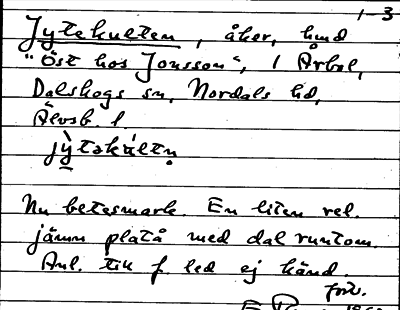 1-3
Jytekulten, åker, hmd
"Öst hos Jonsson", 1 Årbol,
Dalskogs sn, Nordals hd,
Älvsb. l.
jỳtəkúltṇ
Nu betesmark. En liten rel.
jämn platå med dal runtom.
Anl. till f. led ej känd.
förv.